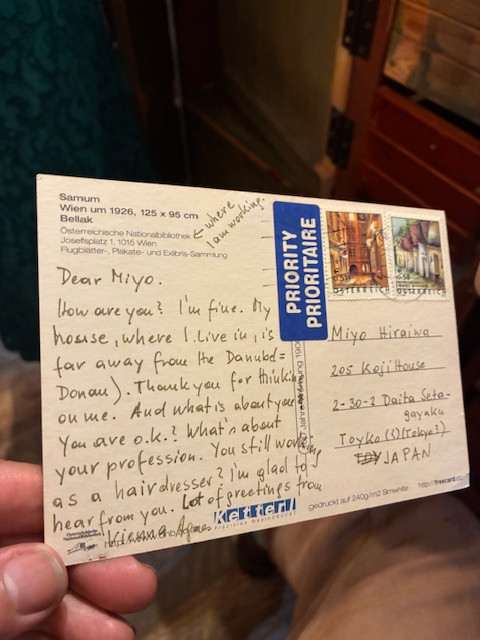 Samum
Wien um 1926, 125 x 95 cm
Bellak
Österreichische Nationalbibliothek
Josefsplatz 1, 1015 Wien
Flugblätter-, Plakate- und Exlibris-Sammlung
where
I am working.
Dear Miyo.
How are you? I'm fine. My
house, where I live in, is
far away from the Danube (=
Donau). Thank you for thinking
on me. And what is about you?
You are o.k.? What's about
your profession. You still working
as a hairdresser? I'm glad to
hear from you. Lot of greetings from
Vienna
PRIORITY
PRIORITAIRE
ÖSTERREICH
ÖSTERREICH
Miyo Hiraiwa
205 Koji House
2-30-2 Daita Seta-
gayaku
Toyko (s) (Tokyo?)
JAPAN
Ketterl
gedruckt auf 240g/m2 Simwhite
http://freecard.